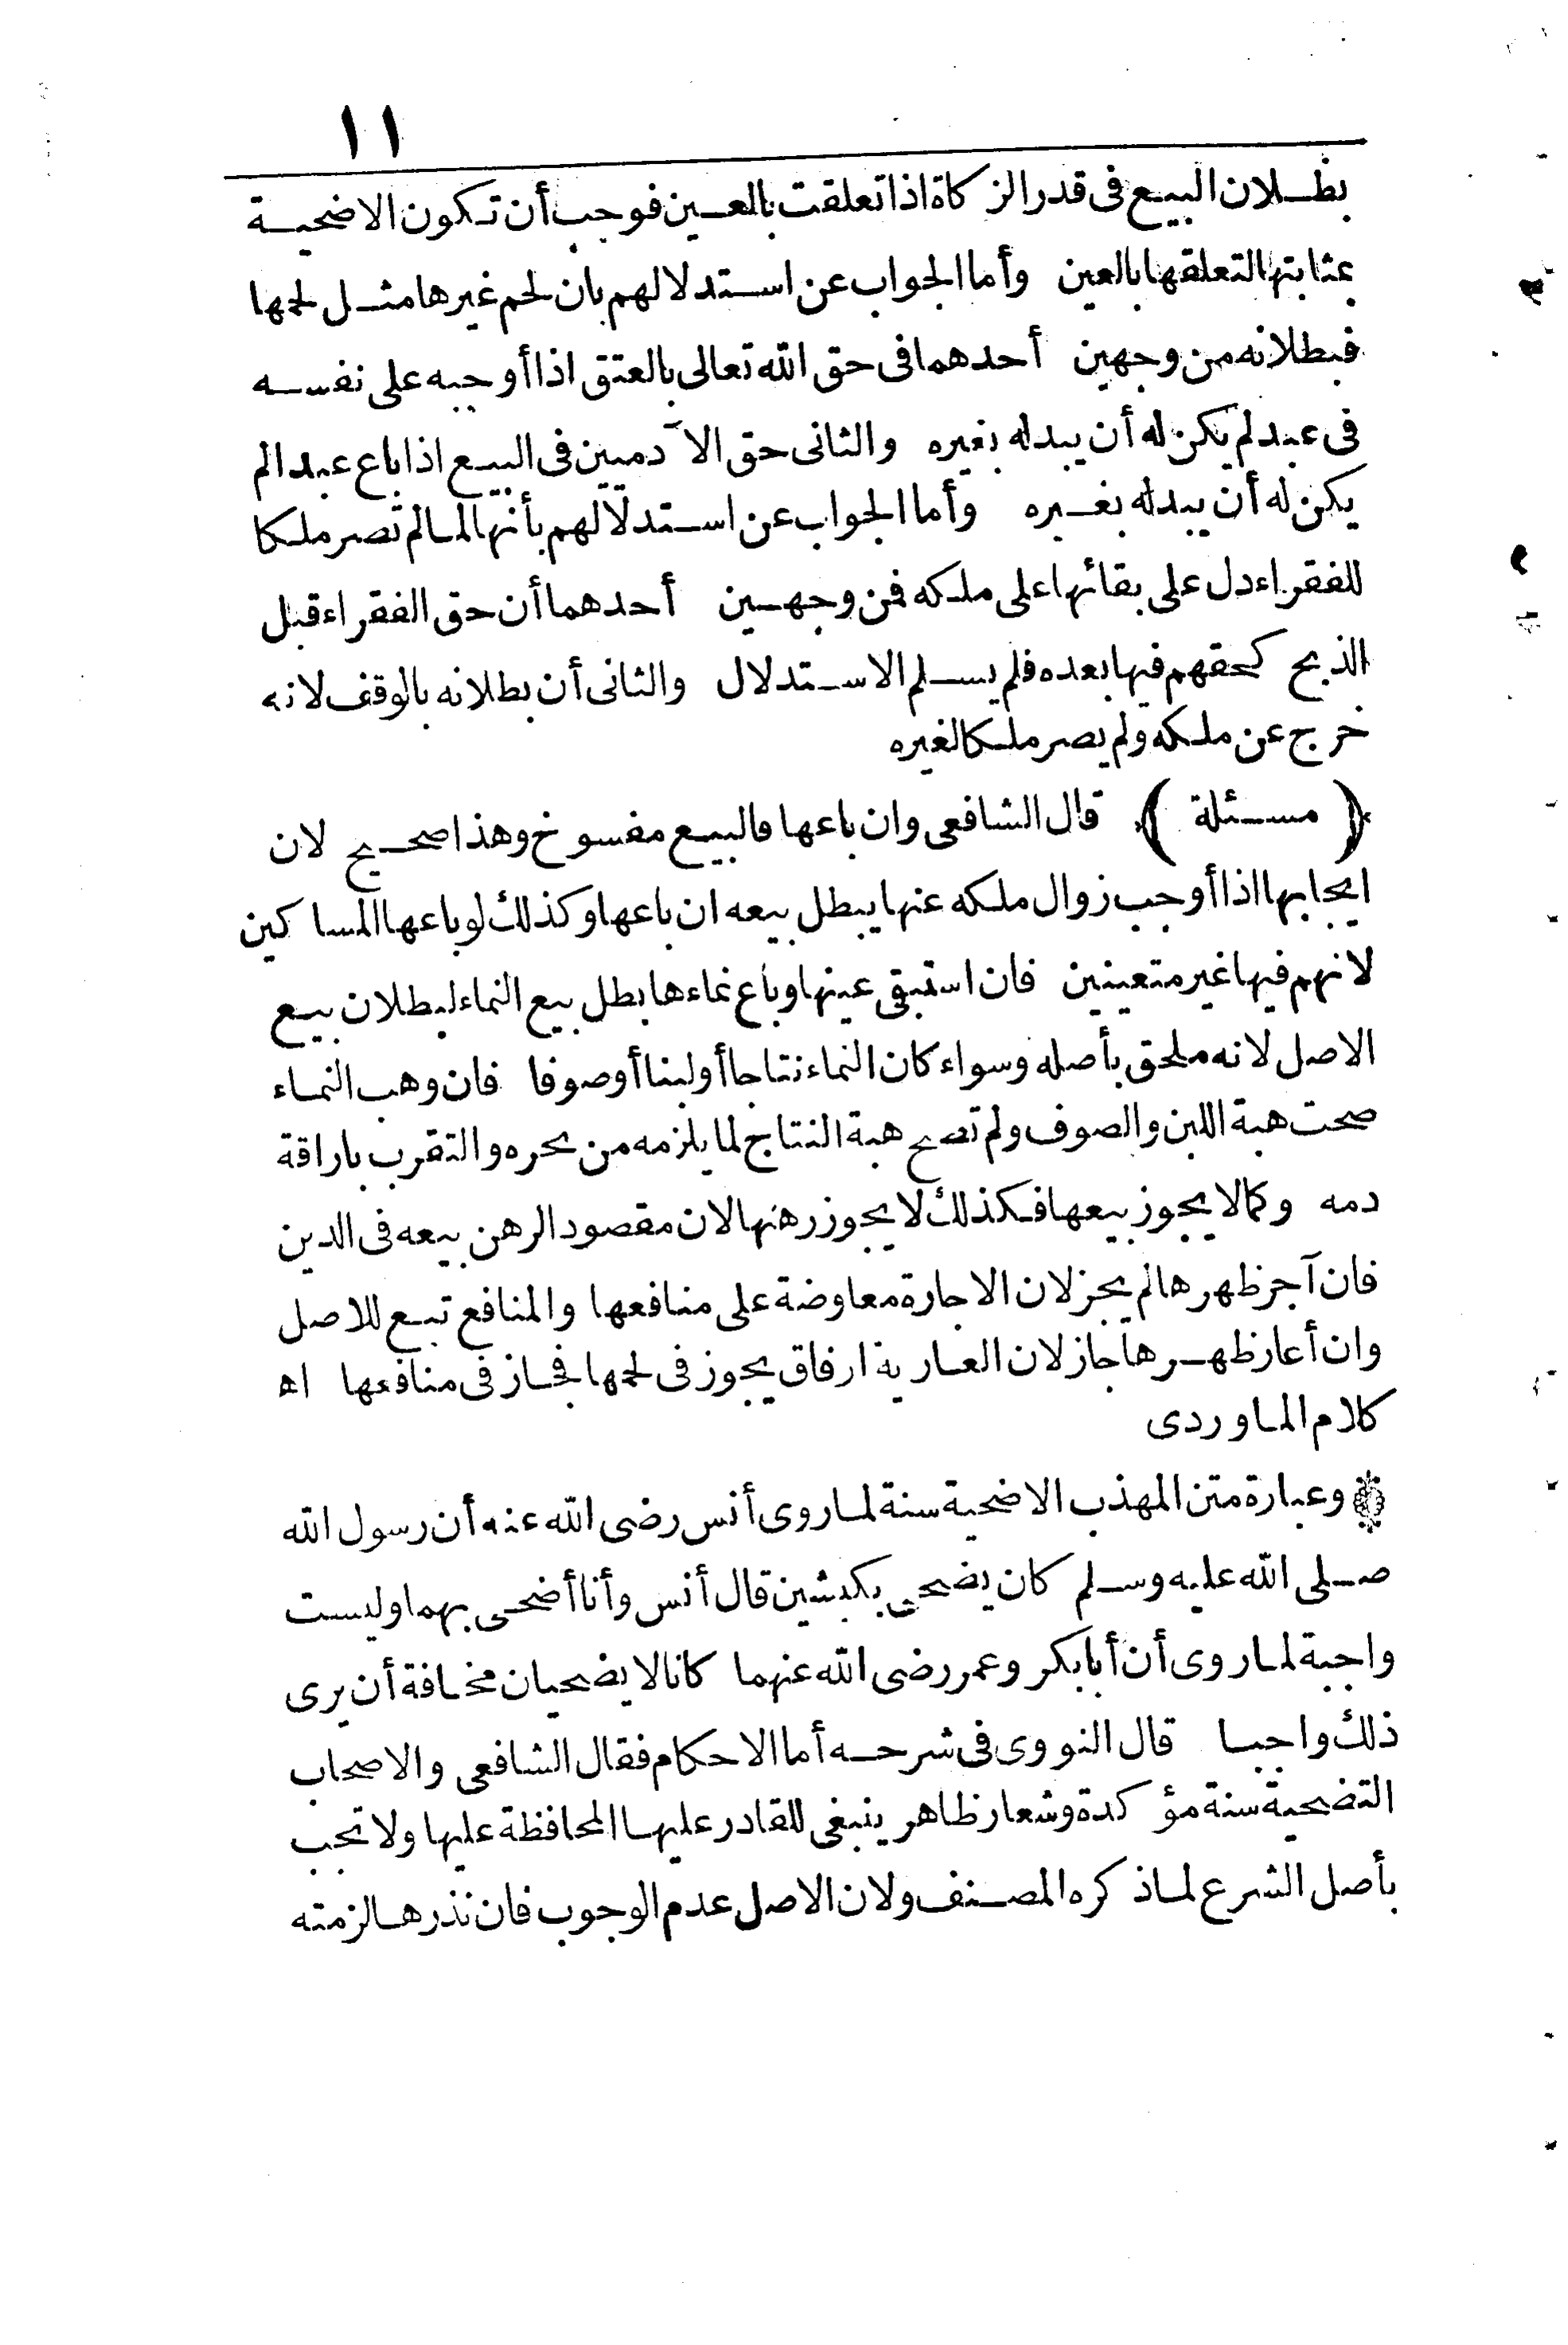 ١١
بطلان البيع فى قدر الزكاة اذا تعلقت بالعين فوجب أن تكون الاضحية
بمثابتها لتعلقها بالعين وأما الجواب عن استدلالهم بان لحم غيرها مثل لحمها
فبطلانه من وجهين أحدهما فى حق الله تعالى بالعتق اذا أوجبه على نفسه
فى عبد لم يكن له أن يبدله بغيره والثانى حق الآدميين فى البيع اذا باع عبدا لم
يكن له أن يبدله بغيره وأما الجواب عن استدلالهم بأنها لما لم تصر ملكا
للفقراء دل على بقائها على ملكه فمن وجهين أحدهما أن حق الفقراء قبل
الذبح كحقهم فيها بعده فلم يسلم الاستدلال والثانى أن بطلانه بالوقف لانه
خرج عن ملكه ولم يصر ملكا لغيره
﴿ مسئلة ﴾ قال الشافعى وان باعها فالبيع مفسوخ وهذا صحيح لان
ايجابها اذا أوجب زوال ملكه عنها يبطل بيعه ان باعها وكذلك لو باعها المساكين
لانهم فيها غير متعينين فان استبقى عينها وباع نماءها بطل بيع النماء لبطلان بيع
الاصل لانه ملحق بأصله وسواء كان النماء نتاجا أو لبنا أو صوفا فان وهب النماء
صحت هبة اللبن والصوف ولم تصح هبة النتاج لما يلزمه من نحره والتقرب باراقة
دمه وكما لا يجوز بيعها فكذلك لا يجوز رهنها لان مقصود الرهن بيعه فى الدين
فان آجر ظهرها لم يجز لان الاجارة معاوضة على منافعها والمنافع تبع للاصل
وان أعار ظهرها جاز لان العارية ارفاق يجوز فى لحمها فجاز فى منافعها اه
كلام الماوردى
وعبارة متن المهذب الاضحية سنة لما روى أنس رضى الله عنه أن رسول الله
صلى الله عليه وسلم كان يضحى بكبشين قال أنس وأنا أضحى بهما وليست
واجبة لما روى أن أبا بكر وعمر رضى الله عنهما كانا لا يضحيان مخافة أن يرى
ذلك واجبا قال النووى فى شرحه أما الاحكام فقال الشافعى والاصحاب
التضحية سنة مؤكدة وشعار ظاهر ينبغى للقادر عليها المحافظة عليها ولا تجب
بأصل الشرع لما ذكره المصنف ولان الاصل عدم الوجوب فان نذرها لزمته